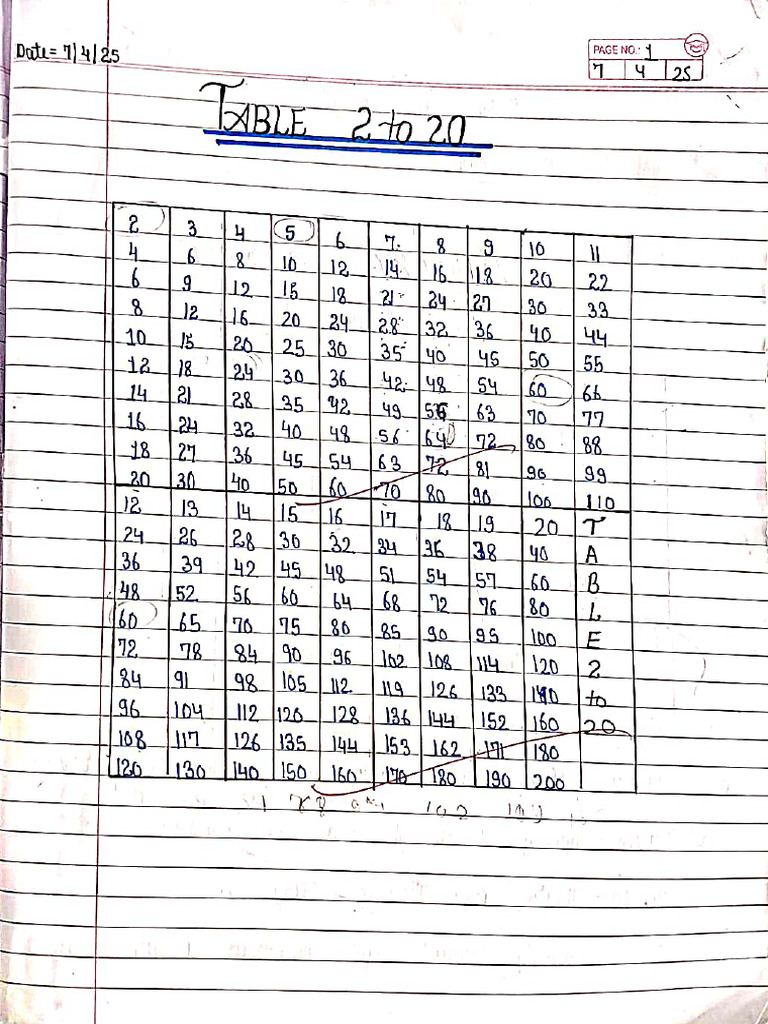 Date = 7/4/25
PAGE NO.: 1
7 4 25
TABLE 2 to 20
2 3 4 5 6 7 8 9 10 11
4 6 8 10 12 14 16 18 20 22
6 9 12 15 18 21 24 27 30 33
8 12 16 20 24 28 32 36 40 44
10 15 20 25 30 35 40 45 50 55
12 18 24 30 36 42 48 54 60 66
14 21 28 35 42 49 56 63 70 77
16 24 32 40 48 56 64 72 80 88
18 27 36 45 54 63 72 81 90 99
20 30 40 50 60 70 80 90 100 110
12 13 14 15 16 17 18 19 20 T
24 26 28 30 32 34 36 38 40 A
36 39 42 45 48 51 54 57 60 B
48 52 56 60 64 68 72 76 80 L
60 65 70 75 80 85 90 95 100 E
72 78 84 90 96 102 108 114 120 2
84 91 98 105 112 119 126 133 140 to
96 104 112 120 128 136 144 152 160 20
108 117 126 135 144 153 162 171 180
120 130 140 150 160 170 180 190 200